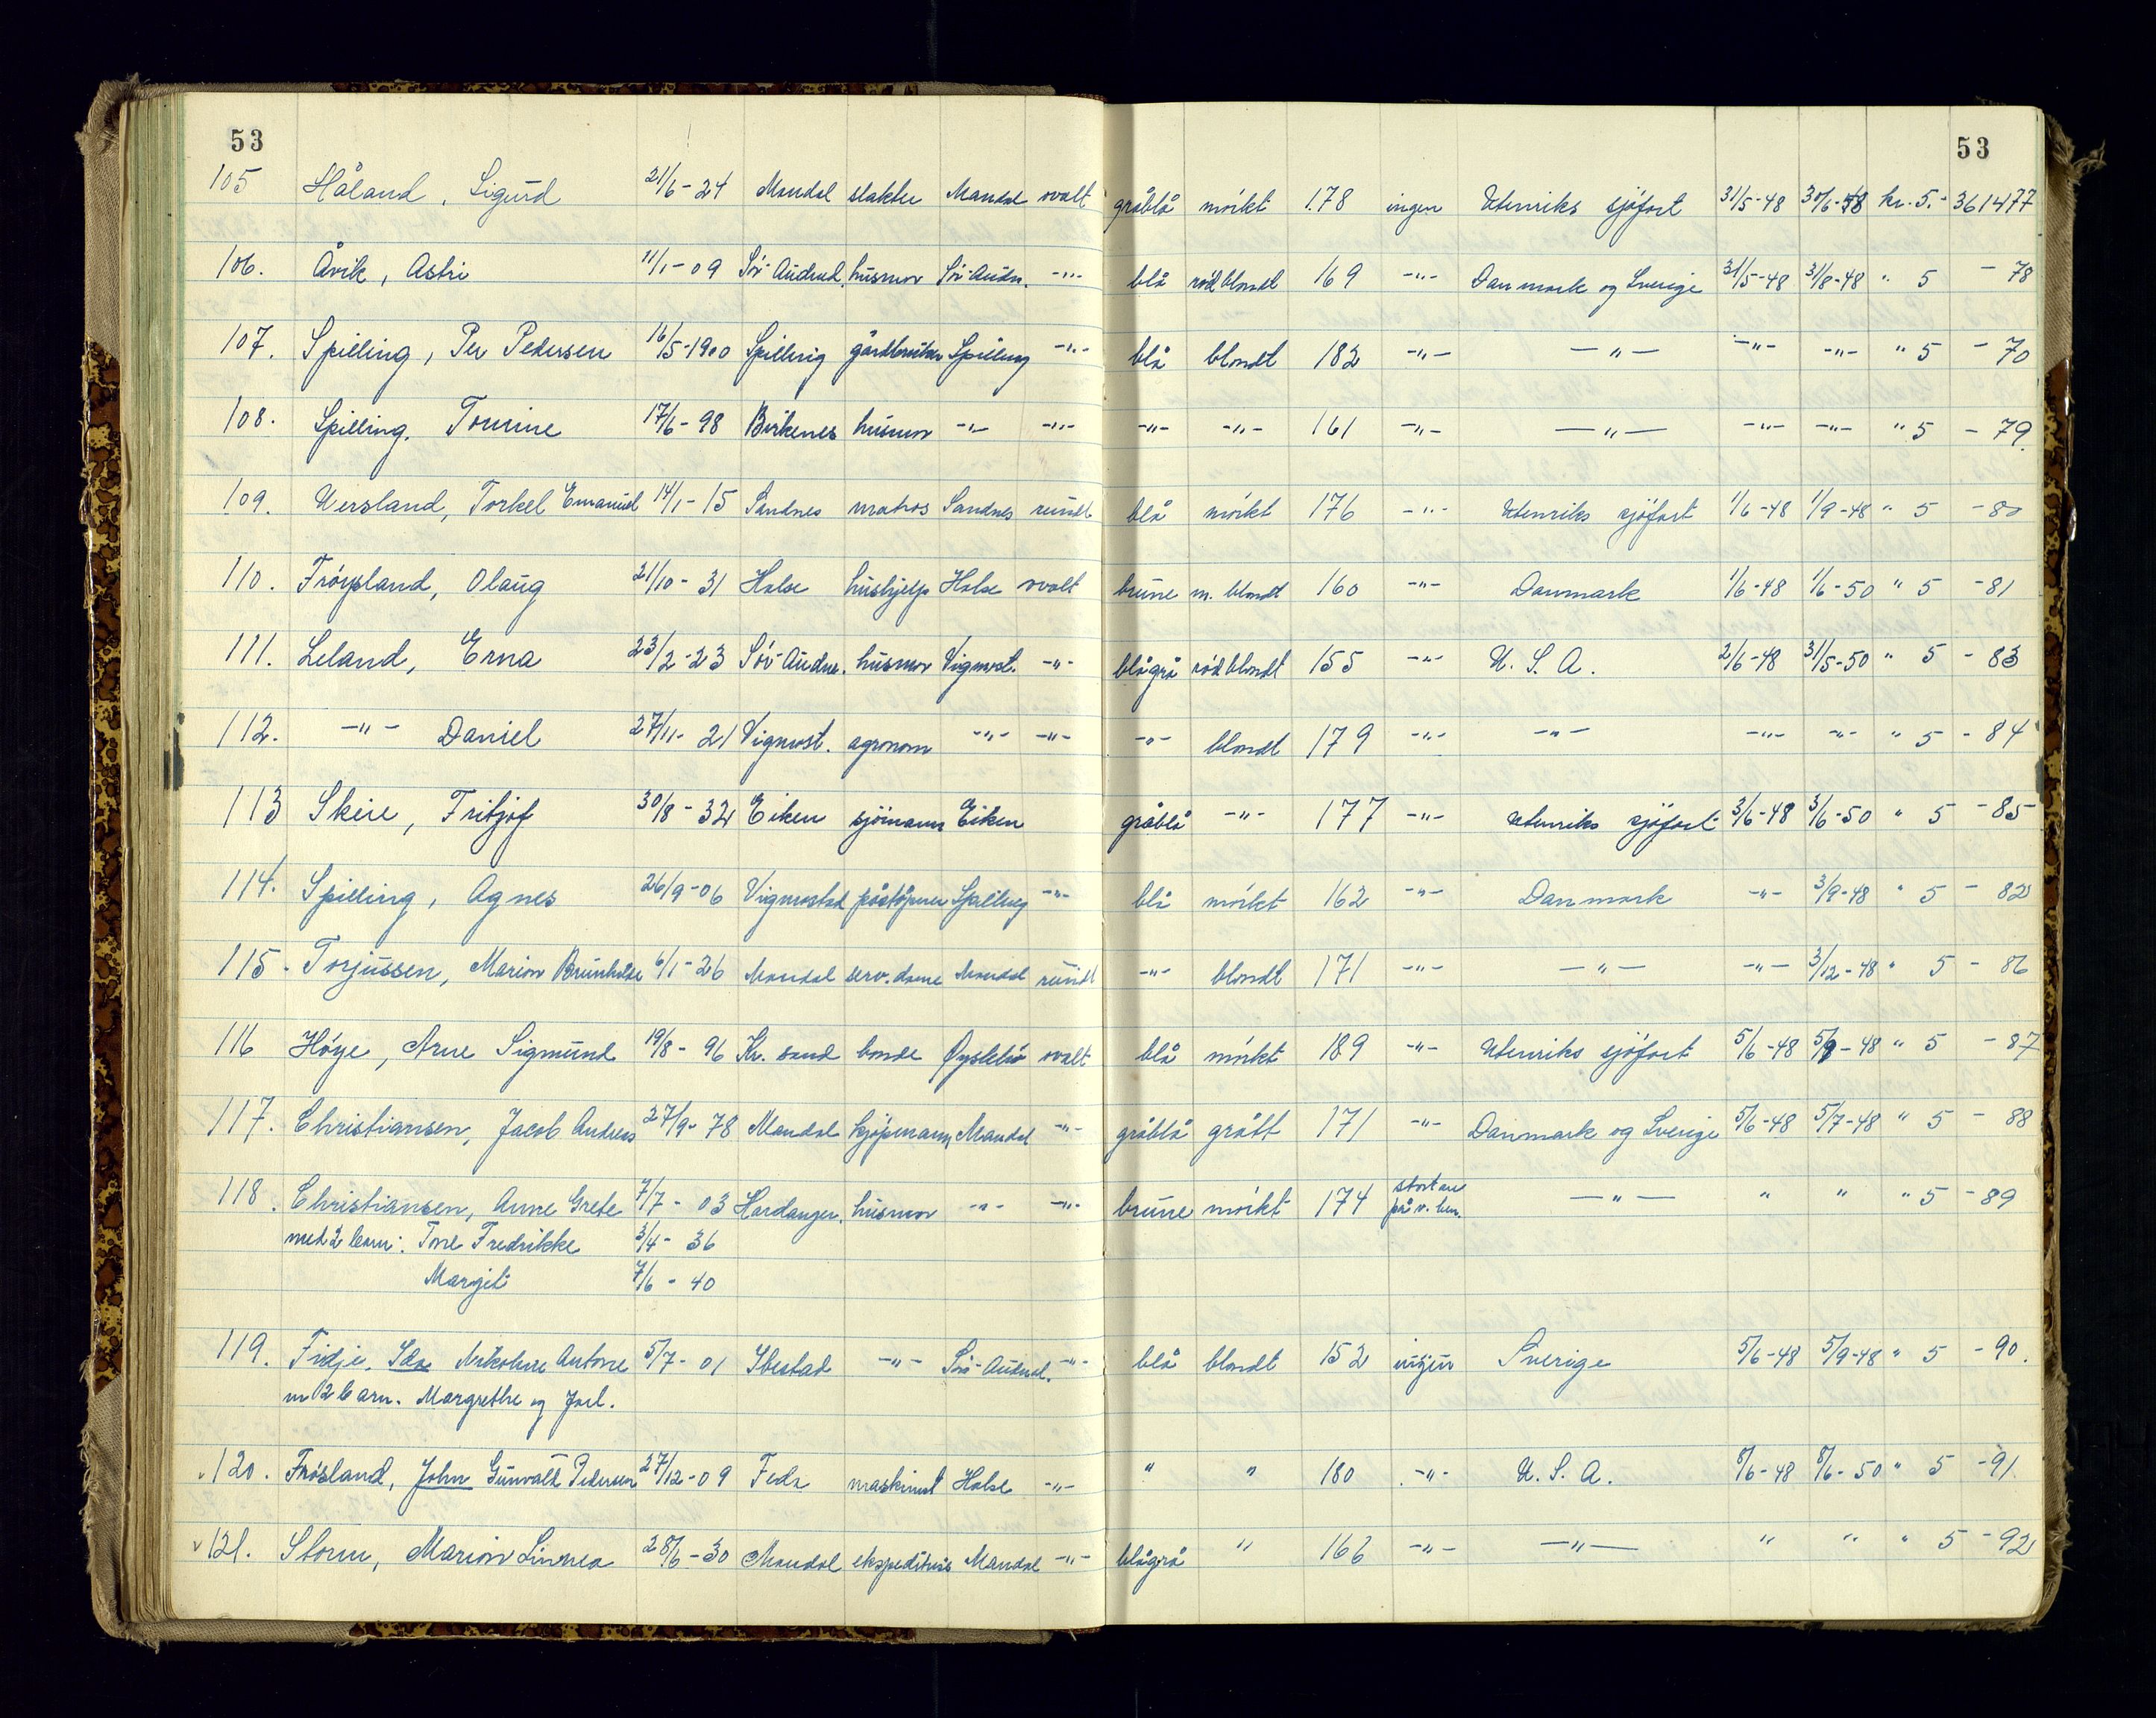 53 53
105 Håland, Sigurd 21/6-24 Mandal slakter Mandal ovalt gråblå mörkt 1.78 ingen Utenriks sjöfart 31/5-48 30/6-48 kr. 5.- 361477
106. Åvik, Astri 11/1-09 Sör-Audned. husmor Sör-Audn. -"- blå rödblondt 169 -"- Danmark og Sverige 31/5-48 31/8-48 " 5 - 78
107. Spilling, Per Pedersen 16/5-1900 Spilling gårdbruker Spilling -"- blå blondt 182 -"- -"- -"- -"- " 5 - 70
108. Spilling, Tomine 17/6-98 Birkenes husmor -"- -"- -"- -"- 161 -"- -"- -"- -"- " 5 - 79.
109. Versland, Torkel Emanuel 14/1-15 Sandnes matros Sandnes rundt blå mörkt 176 -"- Utenriks sjöfart 1/6-48 1/9-48 " 5 - 80
110. Fröysland, Olaug 21/10-31 Halse hushjelp Halse ovalt brune m. blondt 160 -"- Danmark 1/6-48 1/6-50 " 5 - 81
111. Leland, Erna 23/2-23 Sör-Audne. husmor Vigmost. -"- blågrå rödblondt 155 -"- U.S.A. 2/6-48 31/5-50 " 5 - 83
112. -"- Daniel 27/11-21 Vigmost. agronom -"- -"- -"- blondt 179 -"- -"- -"- -"- " 5 - 84
113 Skeie, Fritjof 30/8-32 Eiken sjömann Eiken gråblå -"- 177 -"- Utenriks sjöfart 3/6-48 3/6-50 " 5 - 85
114. Spilling, Agnes 26/9-06 Vigmostad poståpner Spilling -"- blå mörkt 162 -"- Danmark -"- 3/9-48 " 5 - 82
115. Torjussen, Marion Brunhilde 6/1-26 Mandal serv.dame Mandal rundt -"- blondt 171 -"- -"- -"- 3/12-48 " 5 - 86
116 Höye, Arne Sigmund 19/8-96 Kr.sand bonde Öyslebö ovalt blå mörkt 189 -"- Utenriks sjöfart 5/6-48 5/9-48 " 5 - 87
117. Christiansen, Jacob Andreas 27/9-78 Mandal kjöpmann Mandal -"- gråblå grått 171 -"- Danmark og Sverige 5/6-48 5/7-48 " 5 - 88
118. Christiansen, Anne Grete 7/7-03 Hardanger. husmor -"- -"- brune mörkt 174 stort arr på v. ben. -"- " " " 5 - 89
med 2 barn: Tone Fredrikke 3/4-36
Margit 7/6-40
119. Fidje, Ida Nikoline Antone 5/7-01 Ibestad -"- Sör-Audned. -"- blå blondt 152 ingen Sverige 5/6-48 5/9-48 " 5 - 90.
m/2 barn. Margrethe og Joel.
120. Frösland, John Gunvald Pedersen 27/12-09 Feda maskinist Halse -"- " " 180 -"- U.S.A. 8/6-48 8/6-50 " 5 - 91.
121. Storm, Marion Linnea 28/6-30 Mandal ekspeditrise Mandal -"- blågrå " 166 -"- -"- " " " 5 - 92